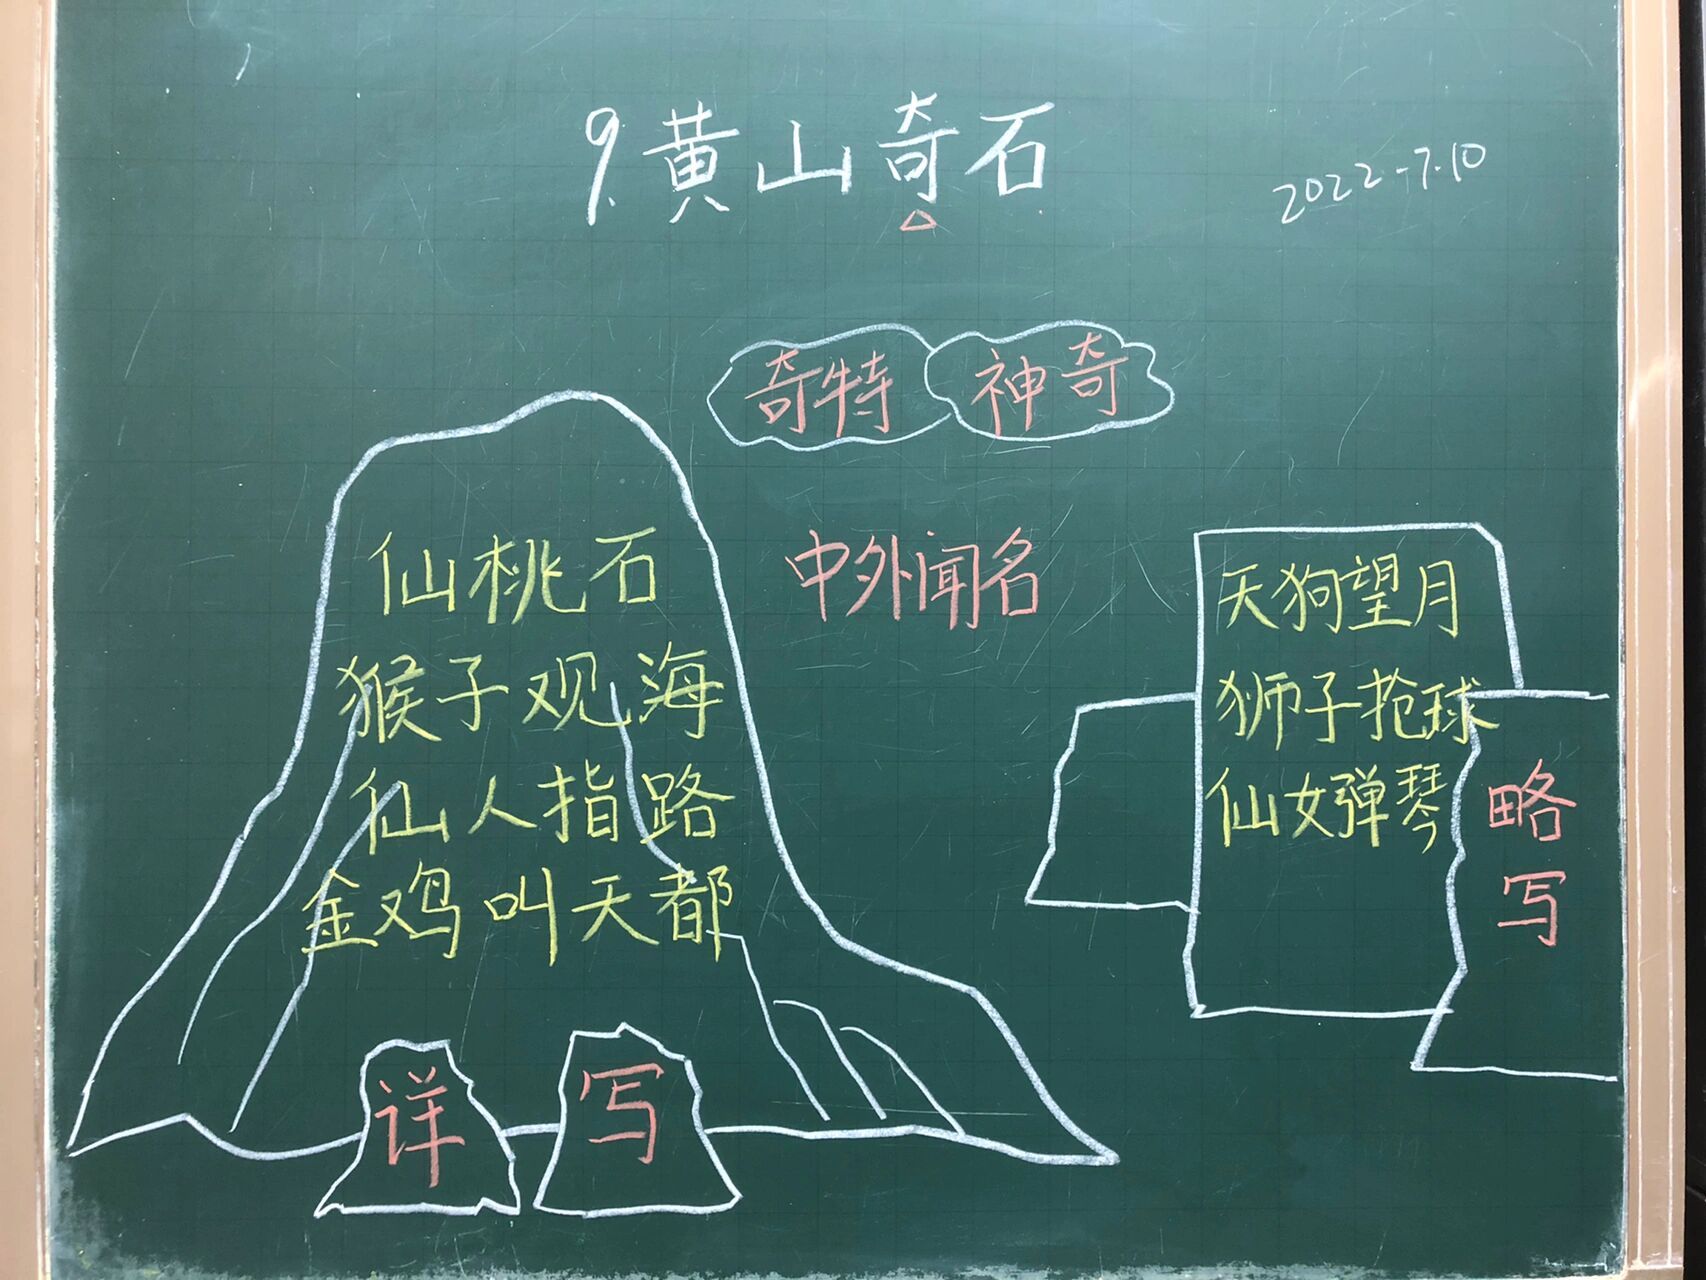 9.黄山奇石
2022.7.10
奇特 神奇
中外闻名
仙桃石
猴子观海
仙人指路
金鸡叫天都
详写
天狗望月
狮子抢球
仙女弹琴
略写